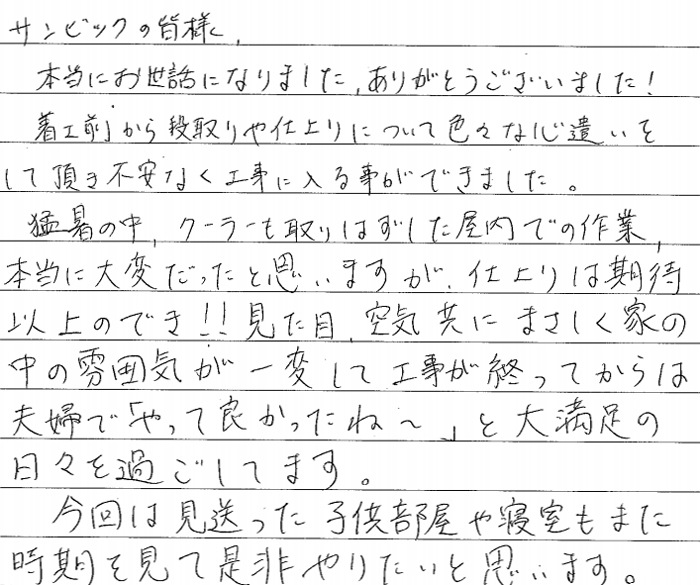 サンビックの皆様へ、
本当にお世話になりました、ありがとうございました!
着工前から段取りや仕上りについて色々な心遣いを
して頂き不安なく工事に入る事ができました。
猛暑の中、クーラーも取りはずした屋内での作業、
本当に大変だったと思いますが、仕上りは期待
以上のでき!!見た目、空気共にまさしく家の
中の雰囲気が一変して工事が終ってからは
夫婦で「やって良かったね〜」と大満足の
日々を過ごしてます。
今回は見送った子供部屋や寝室もまた
時期を見て是非やりたいと思います。